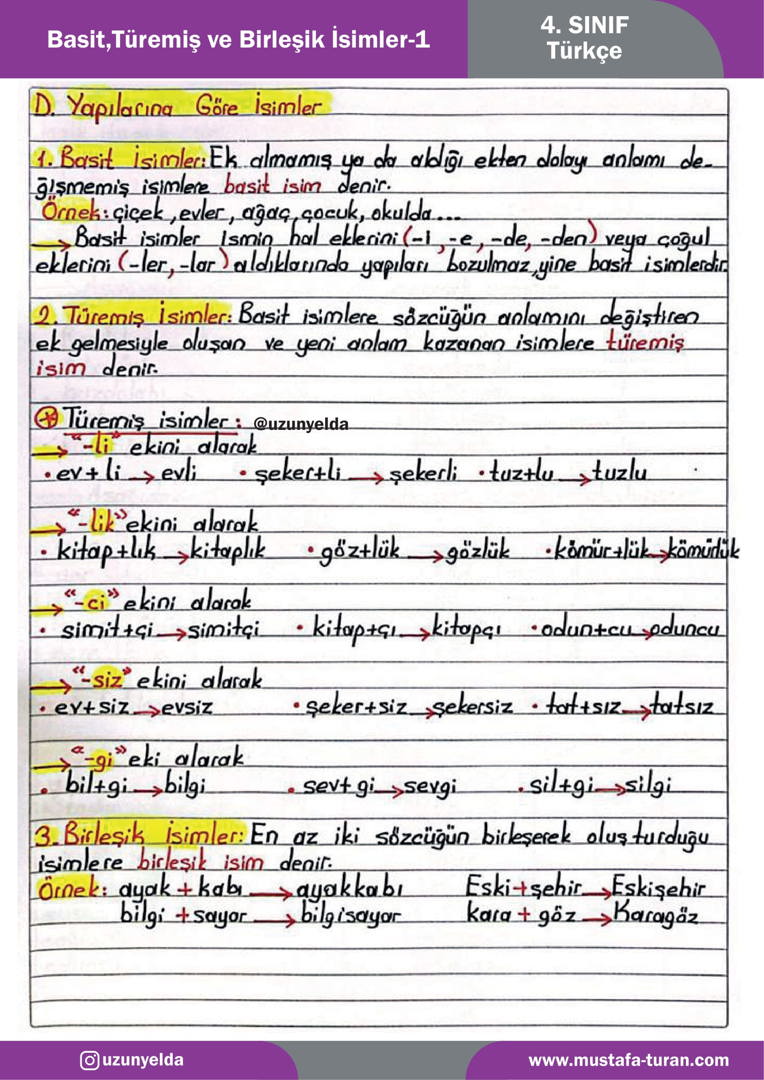 Basit,Türemiş ve Birleşik İsimler-1
4. SINIF
Türkçe
D. Yapılarına Göre İsimler
1. Basit İsimler: Ek almamış ya da aldığı ekten dolayı anlamı de-
ğişmemiş isimlere basit isim denir.
Örnek: çiçek, evler, ağaç, çocuk, okulda...
→ Basit isimler ismin hal eklerini (-i, -e, -de, -den) veya çoğul
eklerini (-ler, -lar) aldıklarında yapıları bozulmaz, yine basit isimlerdir.
2. Türemiş İsimler: Basit isimlere sözcüğün anlamını değiştiren
ek gelmesiyle oluşan ve yeni anlam kazanan isimlere türemiş
isim denir.
Türemiş isimler: @uzunyelda
→ "-li" ekini alarak
• ev+li → evli • şeker+li → şekerli • tuz+lu → tuzlu
→ "-lik" ekini alarak
• kitap+lık → kitaplık • göz+lük → gözlük • kömür+lük → kömürlük
→ "-ci" ekini alarak
• simit+çi → simitçi • kitap+çı → kitapçı • odun+cu → oduncu
→ "-siz" ekini alarak
• ev+siz → evsiz • şeker+siz → şekersiz • tat+sız → tatsız
→ "-gi" eki alarak
• bil+gi → bilgi • sev+gi → sevgi • sil+gi → silgi
3. Birleşik İsimler: En az iki sözcüğün birleşerek oluşturduğu
isimlere birleşik isim denir.
Örnek: ayak + kabı → ayakkabı Eski+şehir → Eskişehir
bilgi + sayar → bilgisayar kara + göz → Karagöz
uzunyelda
www.mustafa-turan.com